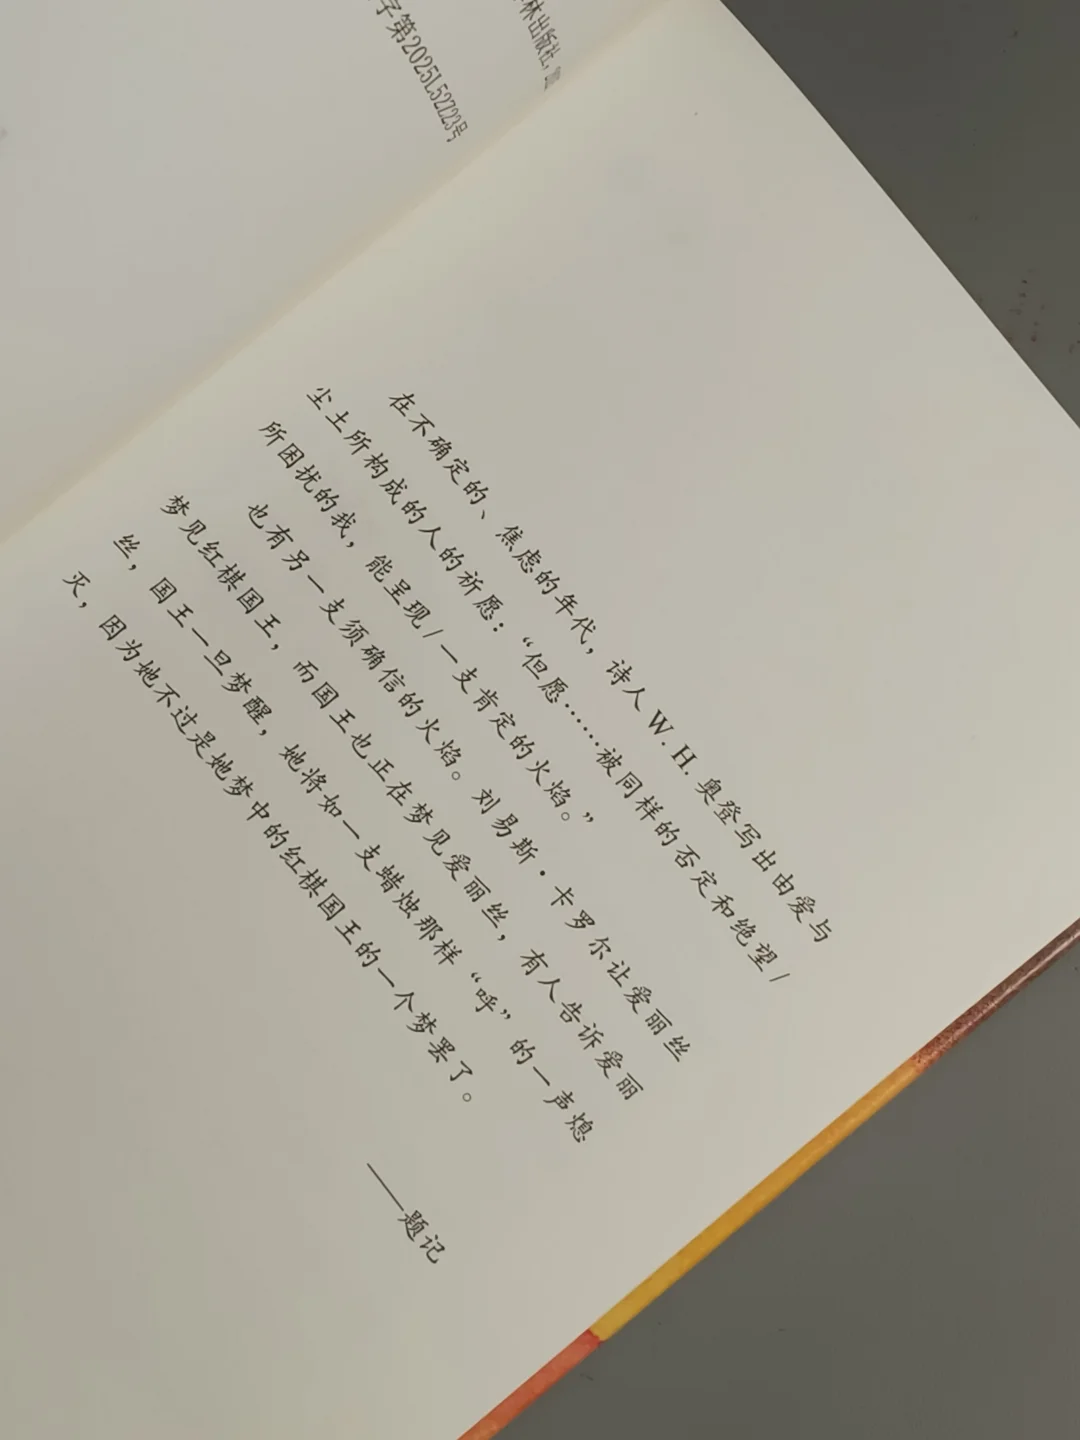 林出版社，
字第2025L52723号
在不确定的、焦虑的年代，诗人 W. H. 奥登写出由爱与
尘土所构成的人的祈愿：“但愿……被同样的否定和绝望/
所困扰的我，能呈现/一支肯定的火焰。”
也有另一支须确信的火焰。刘易斯·卡罗尔让爱丽丝
梦见红棋国王，而国王也正在梦见爱丽丝，有人告诉爱丽
丝，国王一旦梦醒，她将如一支蜡烛那样“呼”的一声熄
灭，因为她不过是她梦中的红棋国王的一个梦罢了。
——题记